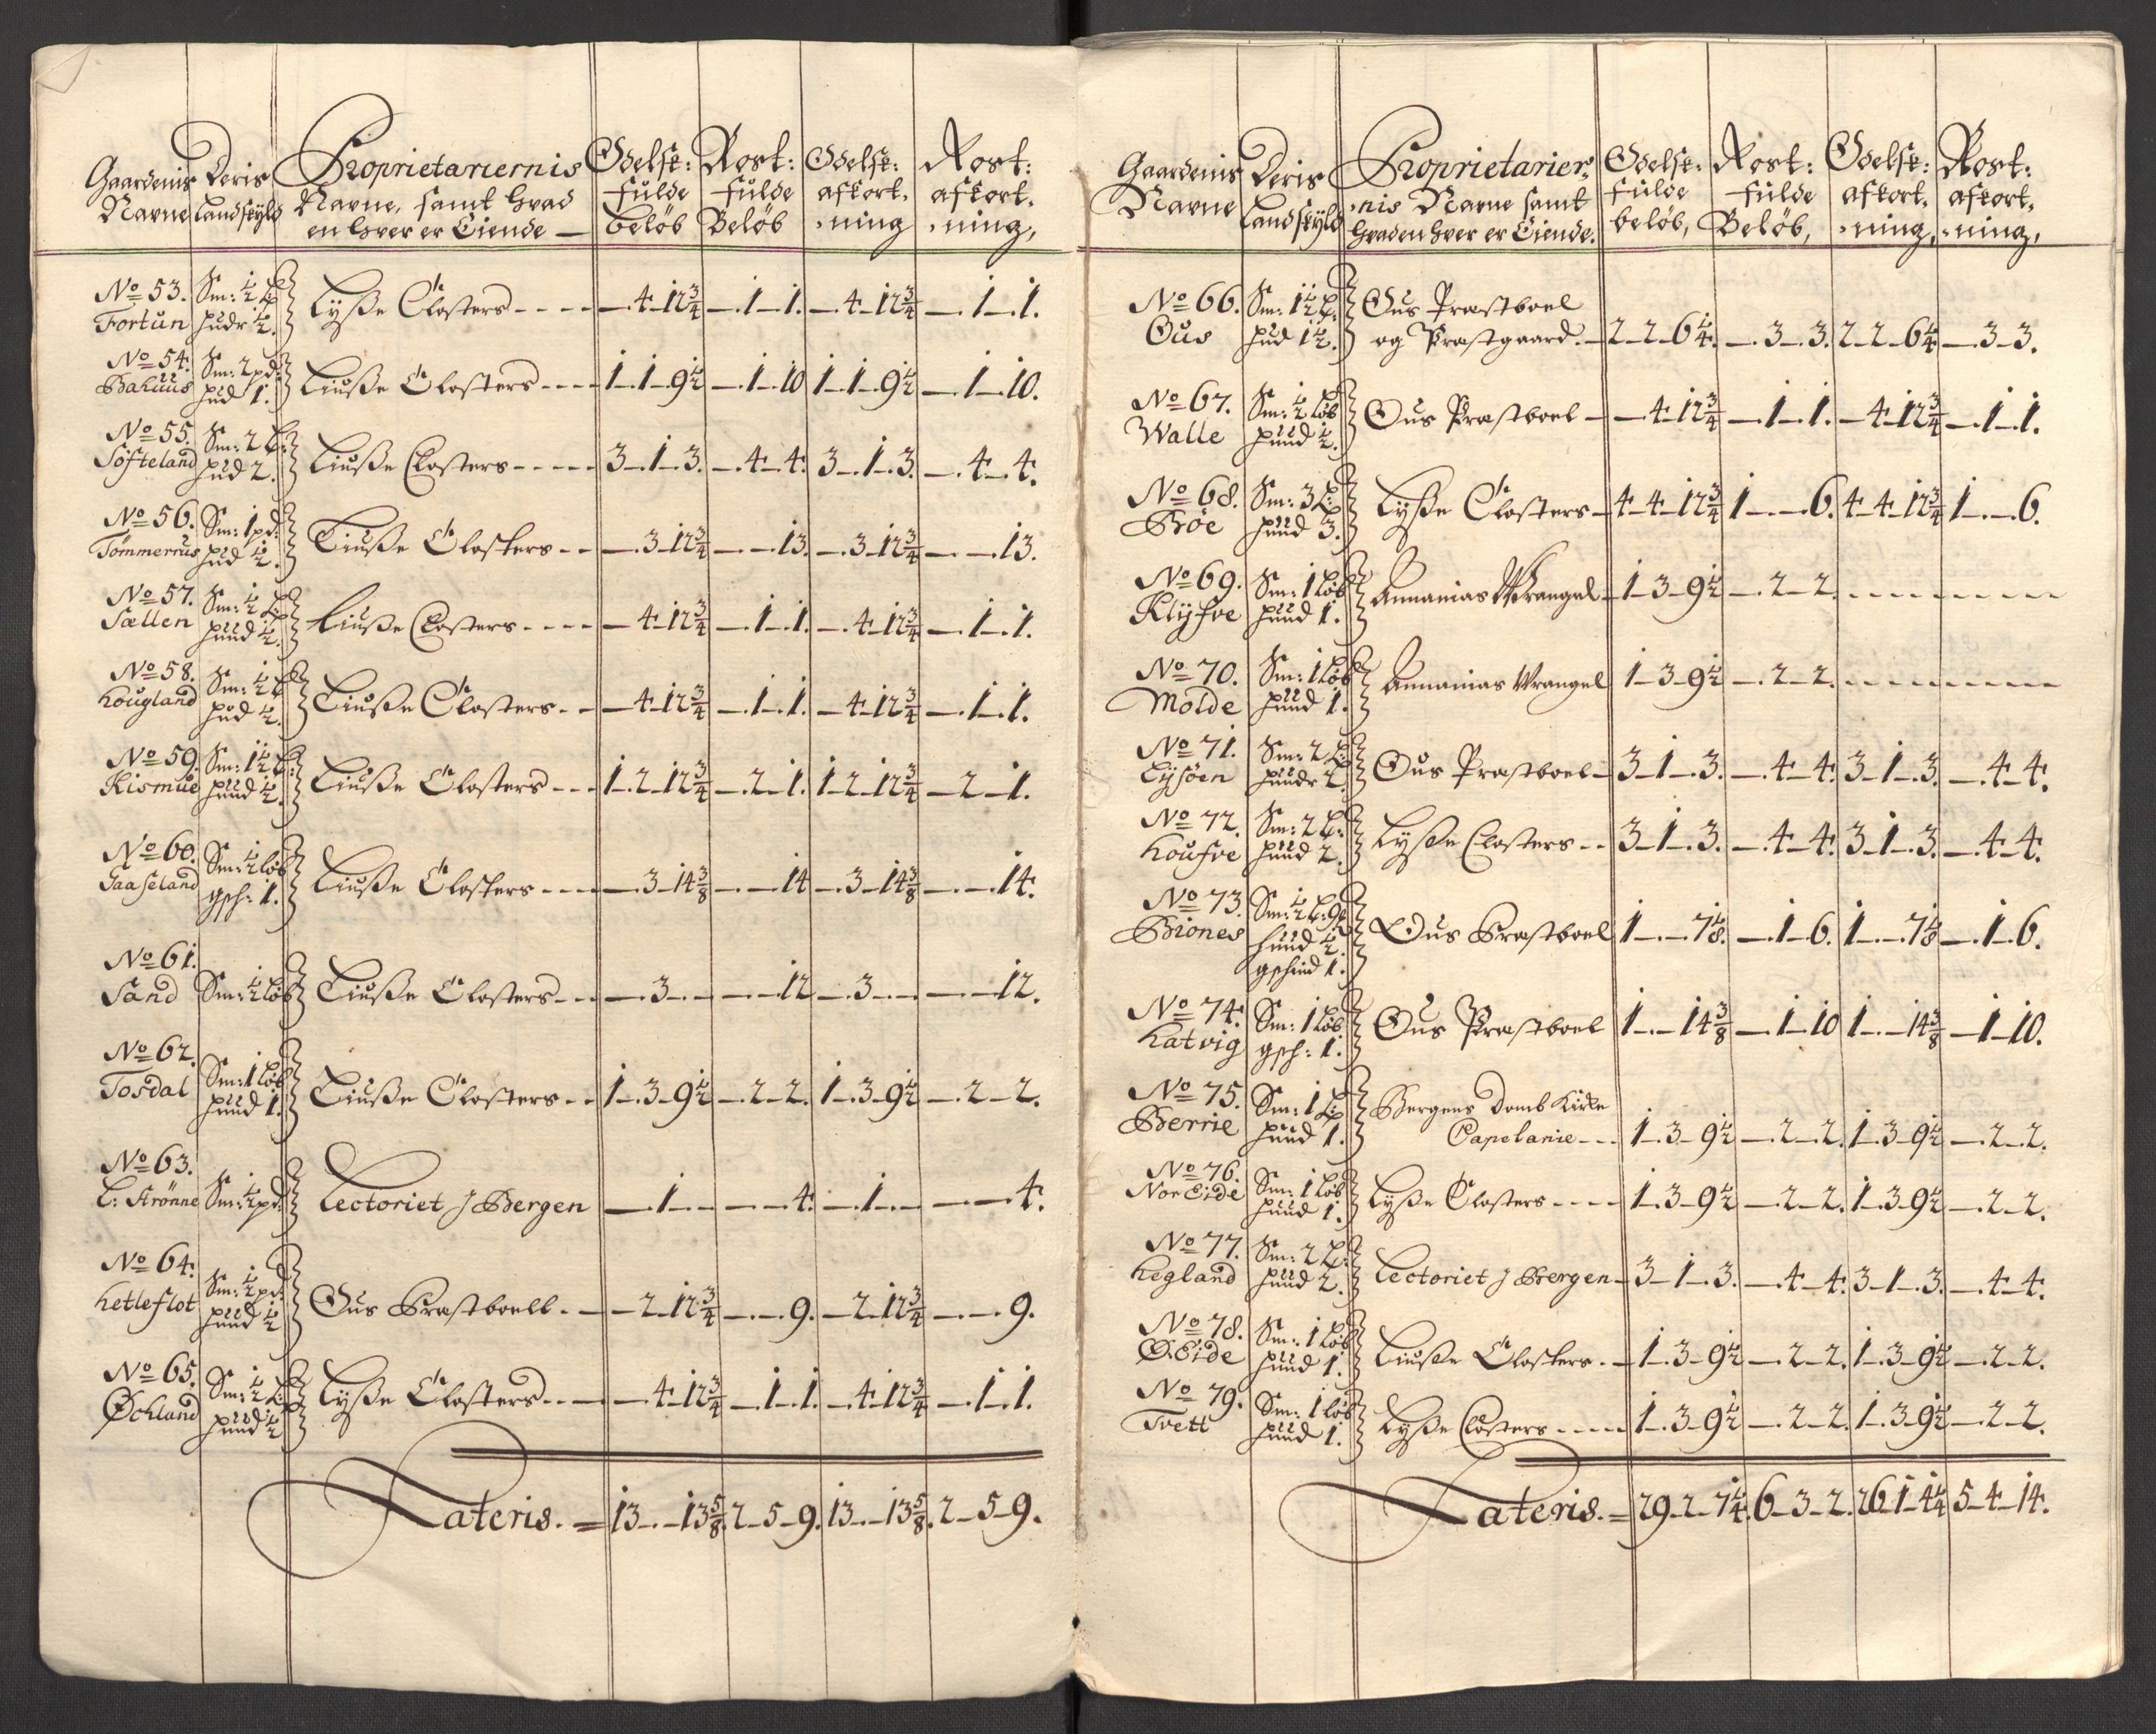 Gaardenis Navne | Deris Landskyld | Proprietariernis Navne, samt hvad en hver er Eiende | Odelsk: fulde beløb | Rost: fulde Beløb | Odelsk: afkortning | Rost: afkortning,
No 53. Fortun | Sm: ½ L hudr ½. | Lyße Closters | 4-12¾ | 1-1. | 4-12¾ | 1-1.
No 54. Bahuus | Sm: 2 pd: hud 1. | Liuße Closters | 1-1-9½ | 1-10 | 1-1-9½ | 1-10.
No 55. Søfteland | Sm: 2 L: hud 2. | Liuße Closters | 3-1-3. | 4-4. | 3-1-3. | 4-4.
No 56. Tømmernus | Sm: 1 pd: hud ½. | Liuße Closters | 3-12¾ | 13. | 3-12¾ | 13.
No 57. Sællen | Sm: ½ L: huud ½. | Liuße Closters | 4-12¾ | 1-1. | 4-12¾ | 1-1.
No 58. Hougland | Sm: ½ L hud ½. | Liuße Closters | 4-12¾ | 1-1. | 4-12¾ | 1-1.
No 59. Rismue | Sm: 1½ L: huud ½. | Liuße Closters | 1-2-12¾ | 2-1. | 1-2-12¾ | 2-1.
No 60. Gaaseland | Sm: ½ løb gsh: 1. | Liuße Closters | 3-14⅜ | 14 | 3-14⅜ | 14.
No 61. Sand | Sm: ½ løb | Liuße Closters | 3 | 12 | 3 | 12.
No 62. Tosdal | Sm: 1 løb huud 1. | Liuße Closters | 1-3-9½ | 2-2. | 1-3-9½ | 2-2.
No 63. L: Strønne | Sm: ½ pd: | Lectoriet J Bergen | 1 | 4. | 1 | 4.
No 64. Hetleflot | Sm: ½ pd: huud ½ | Ous Præstboell | 2-12¾ | 9. | 2-12¾ | 9.
No 65. Øchland | Sm: ½ L: huud ½ | Lyße Closters | 4-12¾ | 1-1. | 4-12¾ | 1-1.
Lateris. = 13-13⅝. | 2-5-9. | 13-13⅝. | 2-5-9.
Gaardenis Navne | Deris Landskyld | Proprietariernis Navne samt hvad en hver er Eiende. | Odelsk: fulde beløb, | Rost: fulde Beløb, | Odelsk: afkortning, | Rost: afkortning,
No 66. Ous | Sm: 1½ L: hud 1½. | Ous Præstboel og Præstgaard | 2-2-6¼. | 3-3. | 2-2-6¼. | 3-3.
No 67. Walle | Sm: ½ løb huud ½. | Ous Præstboel | 4-12¾ | 1-1. | 4-12¾ | 1-1.
No 68. Brøe | Sm: 3 L: huud 3. | Lyße Closters | 4-4-12¾ | 1-6. | 4-4-12¾ | 1-6.
No 69. Klyfve | Sm: 1 løb huud 1. | Annanias Wrangel | 1-3-9½ | 2-2.
No 70. Molde | Sm: 1 løb huud 1. | Annanias Wrangel | 1-3-9½ | 2-2.
No 71. Lysøen | Sm: 2 L: huudr 2. | Ous Præstboel | 3-1-3. | 4-4. | 3-1-3. | 4-4.
No 72. Houfve | Sm: 2 L: huud 2. | Lyße Closters | 3-1-3. | 4-4. | 3-1-3. | 4-4.
No 73. Biones | huud ½. gshind 1. | Ous Præstboel | 1-7⅛. | 1-6. | 1-7⅛ | 1-6.
No 74. Hatvig | Sm: 1 løb gsh: 1. | Ous Præstboel | 1-14⅜ | 1-10 | 1-14⅜ | 1-10.
No 75. Berrie | Sm: 1 L: huud 1. | Bergens Domb Kirke Capelanie | 1-3-9½ | 2-2. | 1-3-9½ | 2-2.
No 76. Nor Eide | Sm: 1 løb huud 1. | Lyße Closters | 1-3-9½ | 2-2. | 1-3-9½ | 2-2.
No 77. Hegland | Sm: 2 L: huud 2. | Lectoriet J Bergen | 3-1-3. | 4-4. | 3-1-3. | 4-4.
No 78. Ø: Eide | Sm: 1 løb huud 1. | Liuße Closters | 1-3-9½ | 2-2. | 1-3-9½ | 2-2.
No 79. Tvett | Sm: 1 løb huud 1. | Lyße Closters | 1-3-9½ | 2-2. | 1-3-9½ | 2-2.
Lateris. = 29-2-7¼. | 6-3-2. | 26-1-4¼ | 5-4-14.